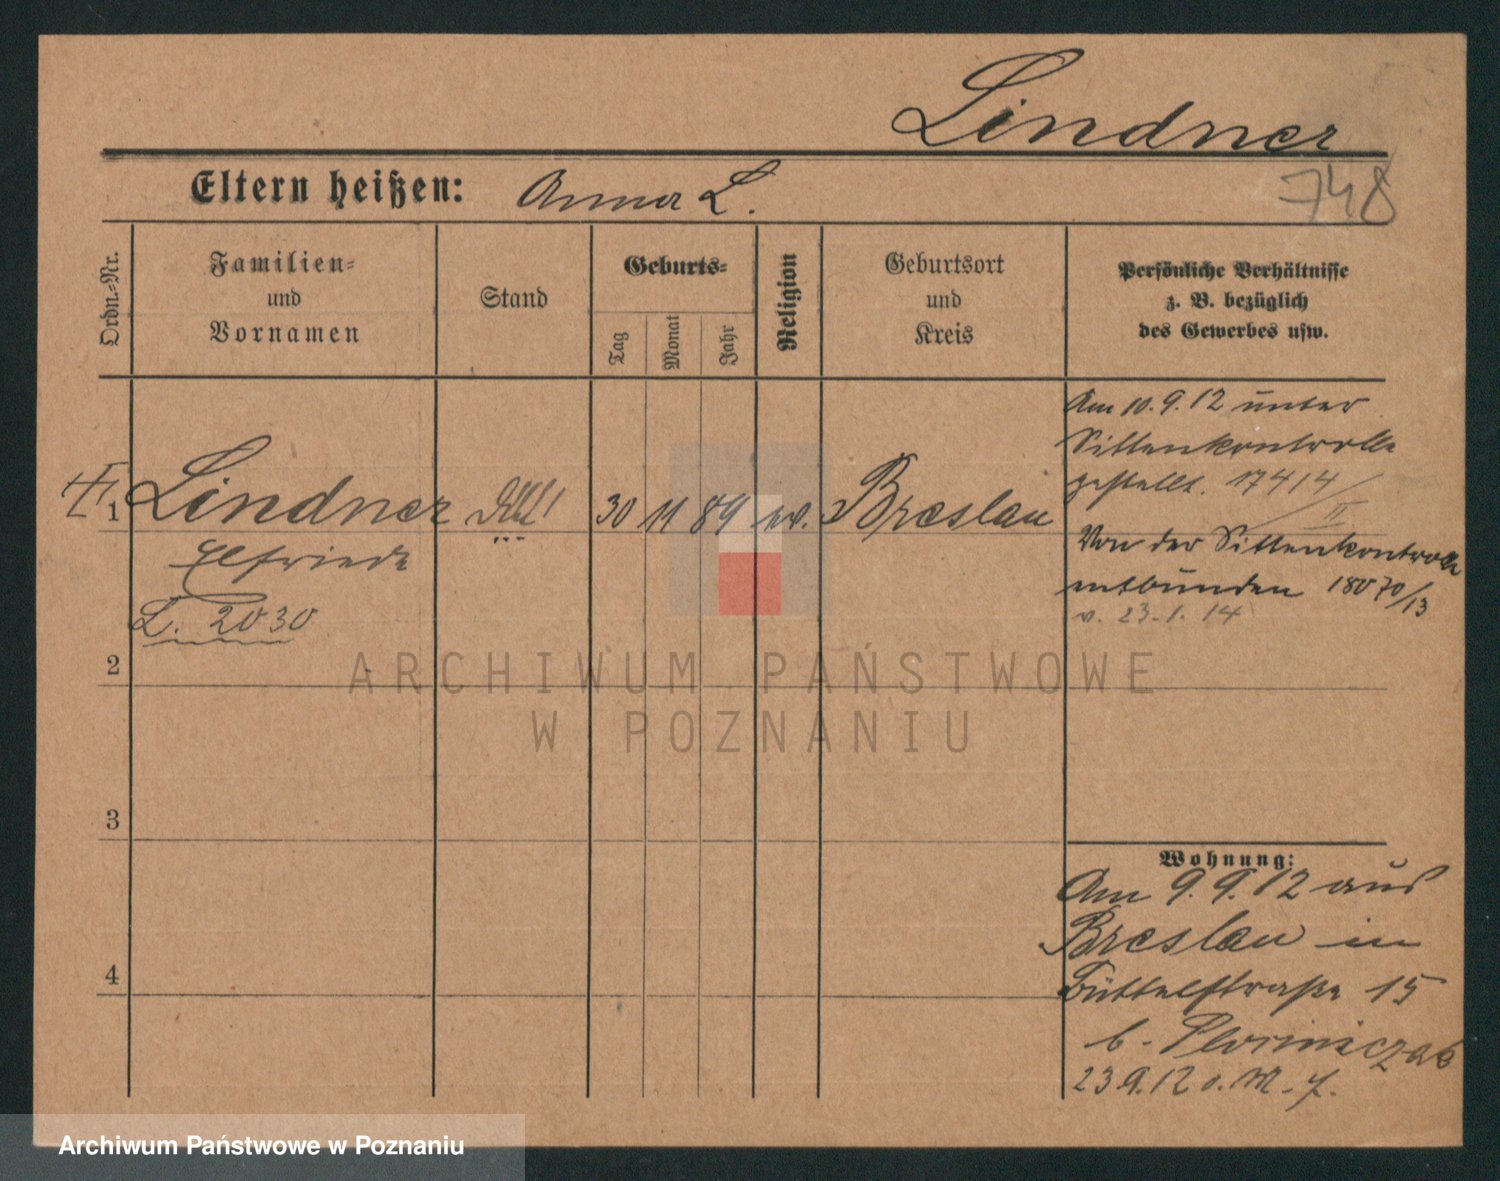 Lindner
Eltern heißen: Anna L.
748
Ordn.-Nr.
Familien-
und
Vornamen
Stand
Geburts-
Tag
Monat
Jahr
Religion
Geburtsort
und
Kreis
Persönliche Verhältnisse
z. B. bezüglich
des Gewerbes usw.
1
Lindner
30 11 89 ev. Breslau
Elfriede
L. 2030
Am 10.9.12 unter
Sittenkontrolle
gestellt. 17414/II
Von der Sittenkontrolle
entbunden 18070/13
v. 23.1.14
2
3
4
Wohnung:
Am 9.9.12 aus
Breslau in
Büttelstraße 15
b.
23.9.12
ARCHIWUM PAŃSTWOWE
W POZNANIU
Archiwum Państwowe w Poznaniu